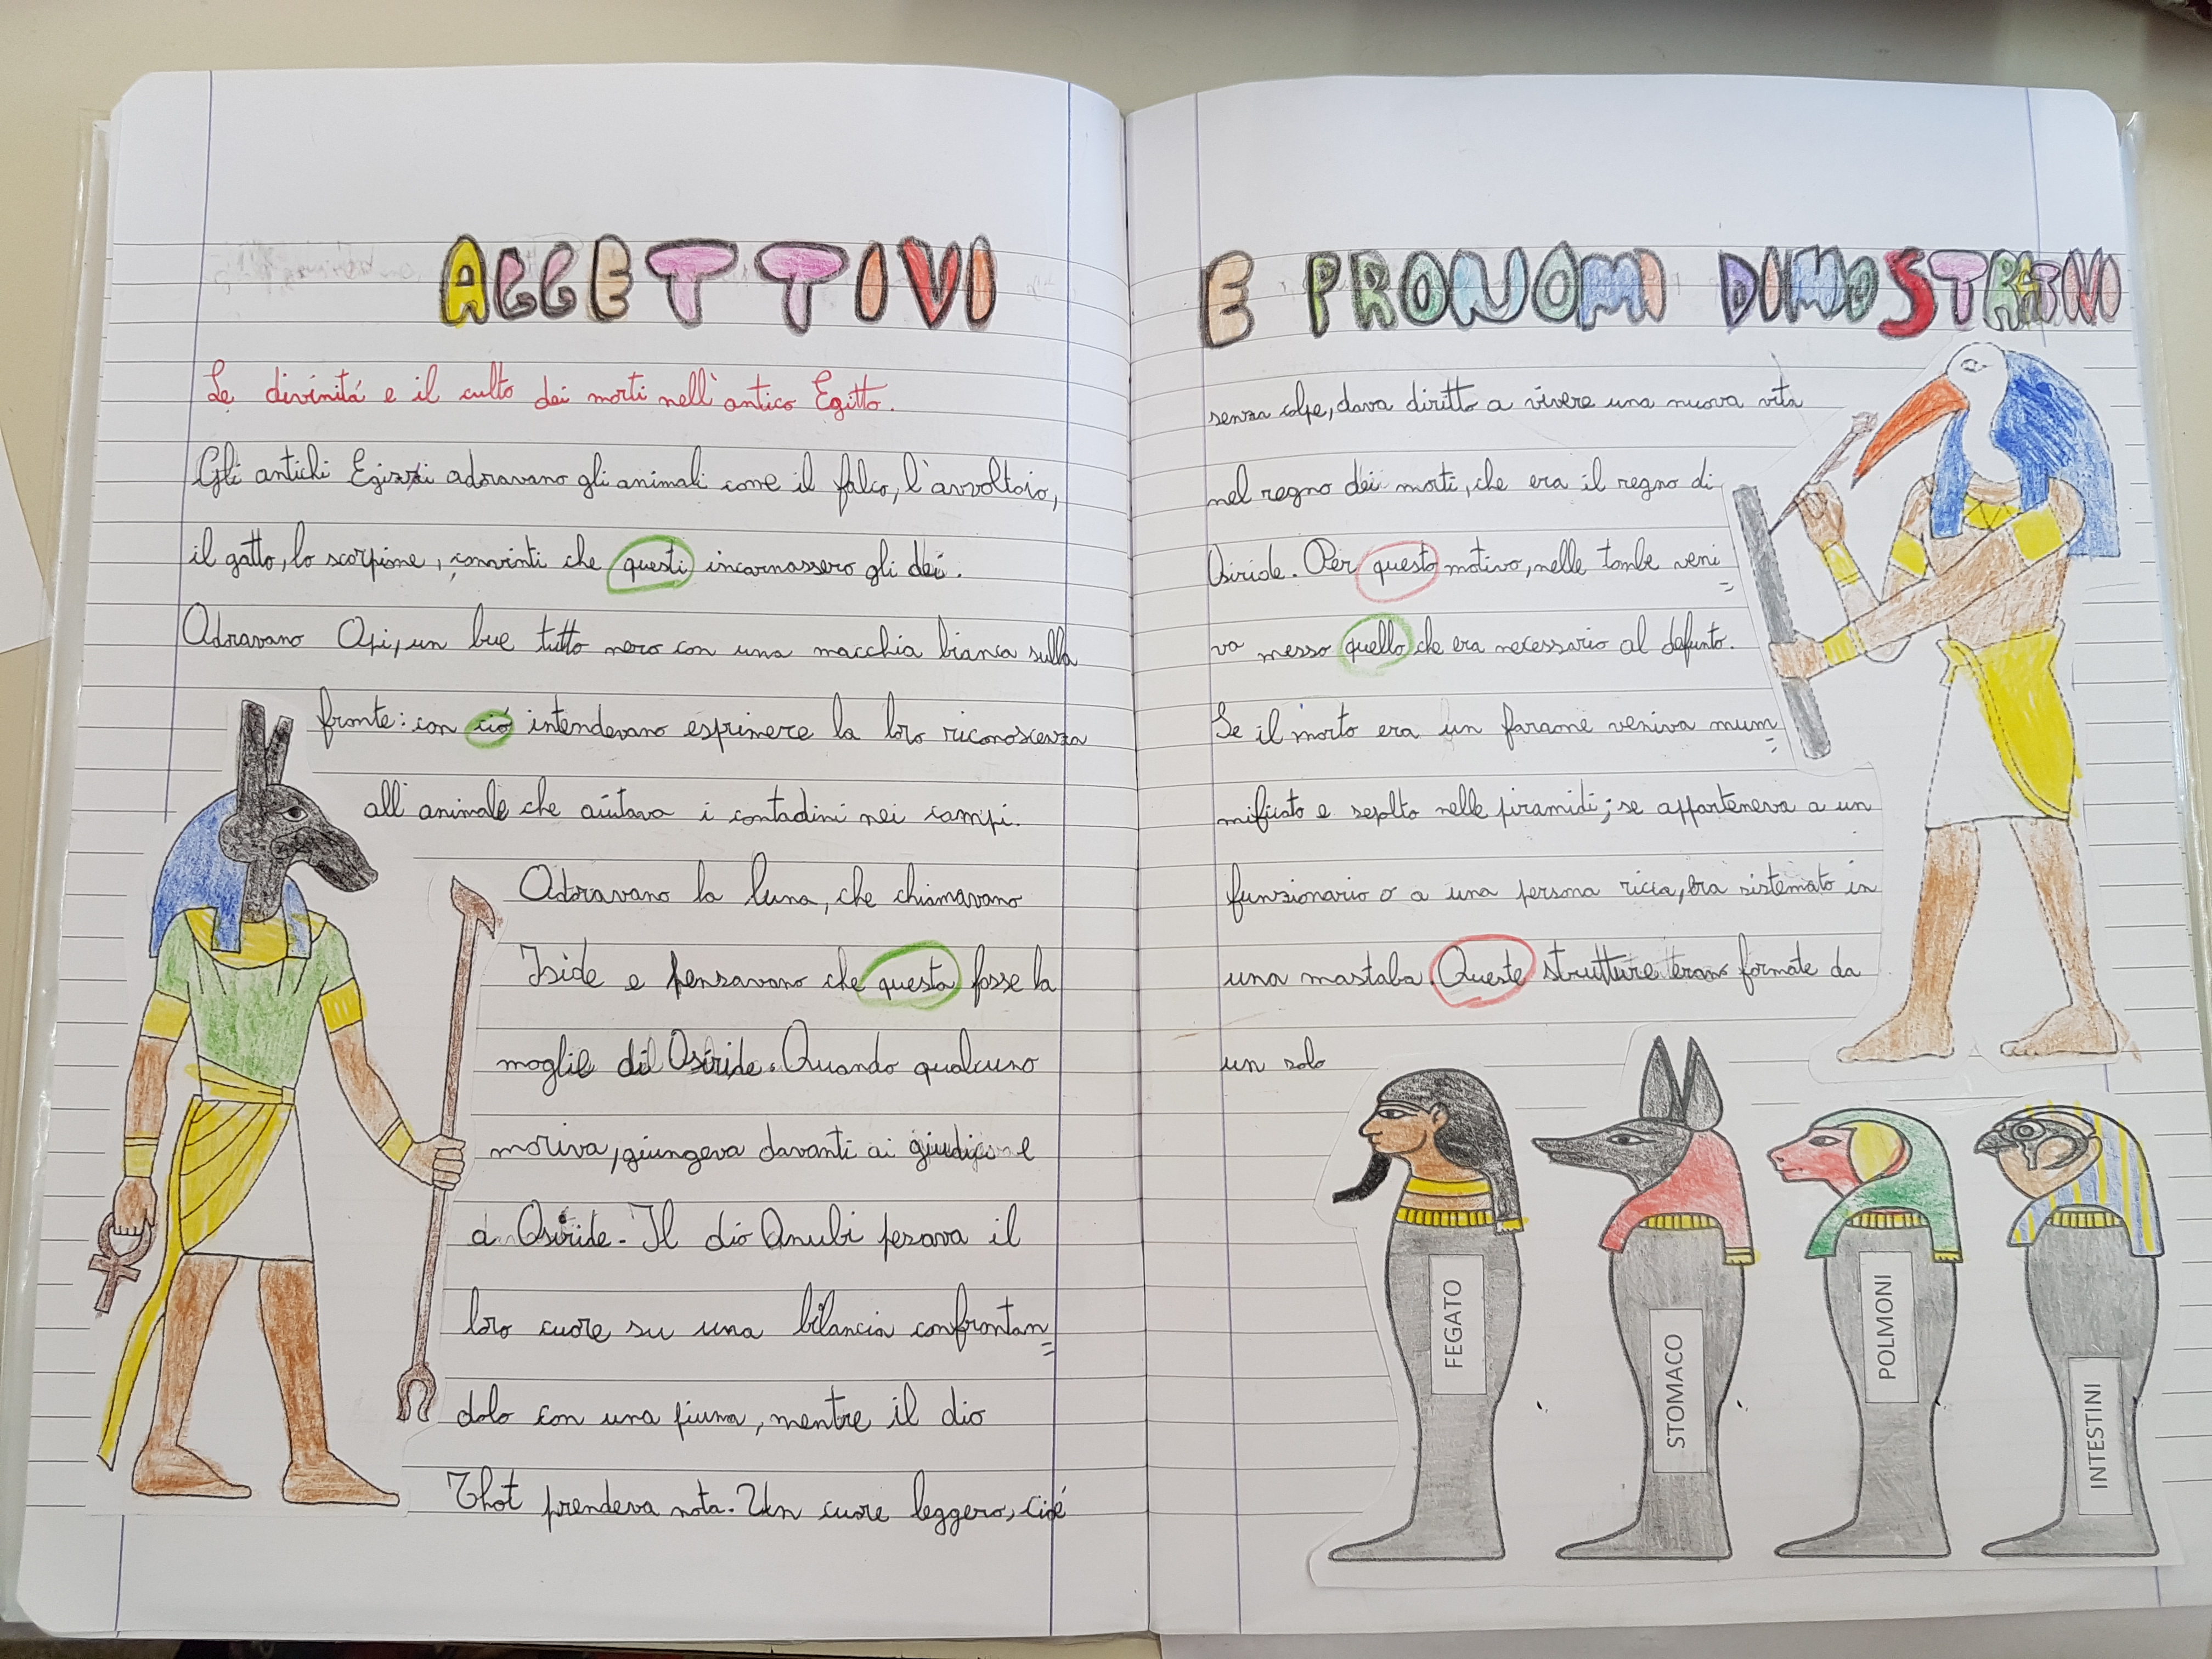 AGGETTIVI
Le divinitá e il culto dei morti nell'antico Egitto.
Gli antichi Egizzi adoravano gli animali come il falco, l'avvoltoio,
il gatto, lo scorpione, convinti che questi incarnassero gli dei.
Adoravano Api, un bue tutto nero con una macchia bianca sulla
fronte: con ció intendevano esprimere la loro riconoscenza
all'animale che aiutava i contadini nei campi.
Adoravano la luna, che chiamavano
Iside e pensavano che questa fosse la
moglie di Osiride. Quando qualcuno
moriva, giungeva davanti ai giudici e
a Osiride. Il dio Anubi pesava il
loro cuore su una bilancia confrontan=
dolo con una piuma, mentre il dio
Thot prendeva nota. Un cuore leggero, cioé
E PRONOMI DIMOSTRATIVI
senza colpe, dava diritto a vivere una nuova vita
nel regno dei morti, che era il regno di
Osiride. Per questo motivo, nelle tombe veni=
va messo quello che era necessario al defunto.
Se il morto era un faraone veniva mum=
mificato e sepolto nelle piramidi; se apparteneva a un
funzionario o a una persona ricca, era sistemato in
una mastaba. Queste strutture erano formate da
un solo
FEGATO
STOMACO
POLMONI
INTESTINI